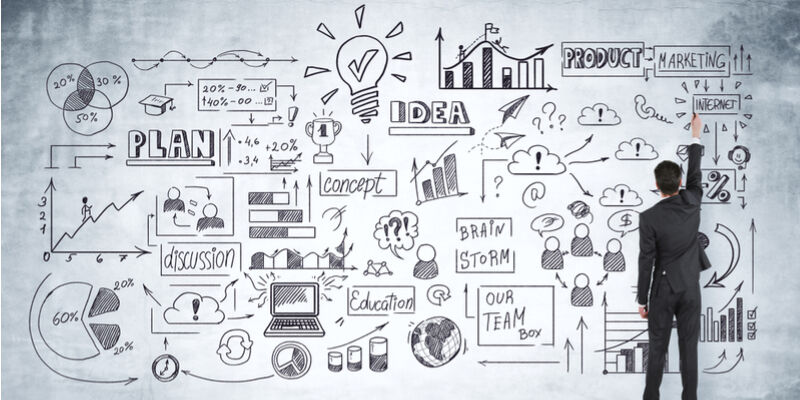 20%
30%
50%
20% - 90...
40% - 00...
!
PLAN
4,6
3,4
+20%
1
IDEA
PRODUCT
MARKETING
INTERNET
???
!
!
!
?
@
%
concept
3
2
1
0
5
6
7
discussion
!?!?
BRAIN
STORM
?
$
60%
20%
20%
!
Education
OUR
TEAM
BOX